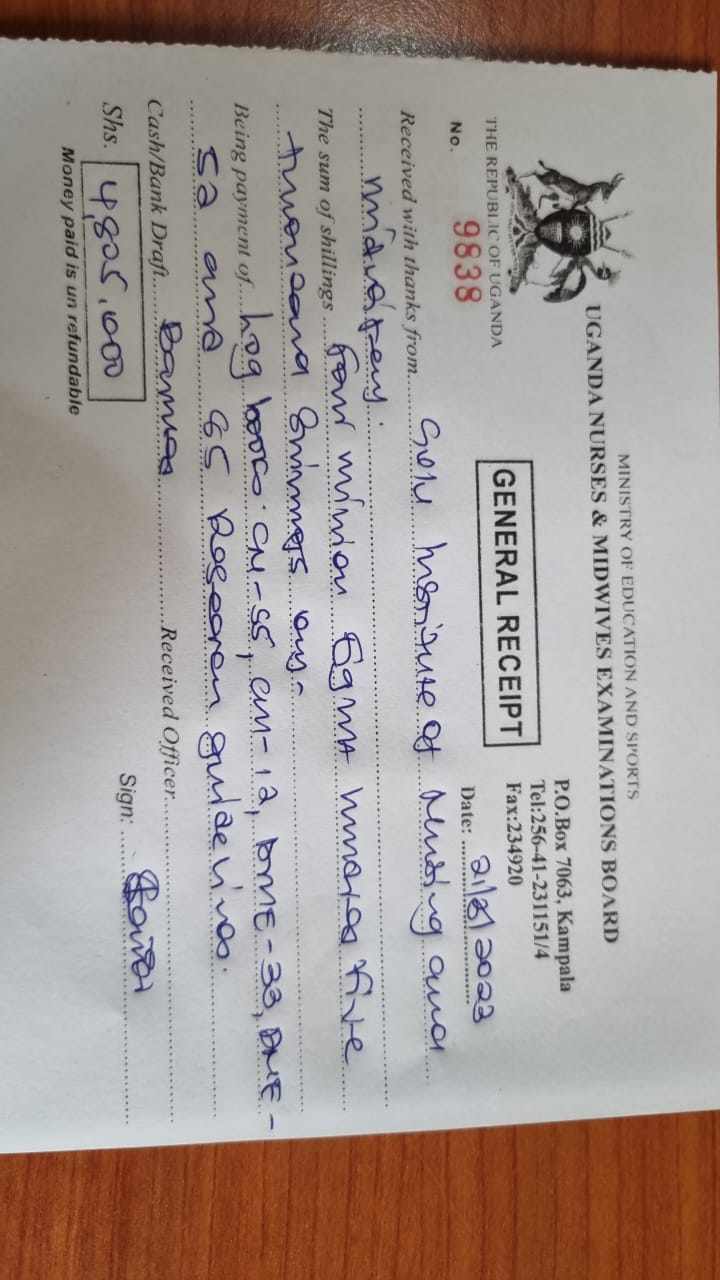 MINISTRY OF EDUCATION AND SPORTS
UGANDA NURSES & MIDWIVES EXAMINATIONS BOARD
P.O.Box 7063, Kampala
Tel:256-41-231151/4
Fax:234920
THE REPUBLIC OF UGANDA
GENERAL RECEIPT
No. 9838
Date: 21/8/2023
Received with thanks from Institute of Nursing and
midwifery.
The sum of shillings four million Eight hundred five
thousand shillings only-
Being payment of log books. CN-55, CM-12, DME-33, DNE-
52 and 65 Research guidelines.
Cash/Bank Draft Received Officer
Shs. 4,805,000
Sign:
Money paid is un refundable